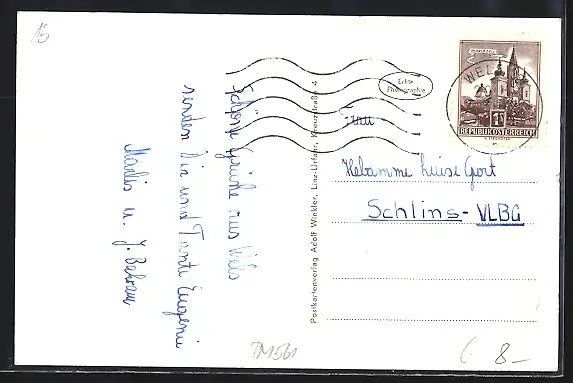 15
Schöne Grüße aus Wels
senden dir und Tante Eugenie
Marlis u. J.
Postkartenverlag Adolf Winkler, Linz-Urfahr, Kreuzstraße 4
Echte
Photographie
WEL
MARIAZELL
1S
REPUBLIK ÖSTERREICH
Frau
Hebamme Luise Gort
Schlins-VLBG
TM561
8-